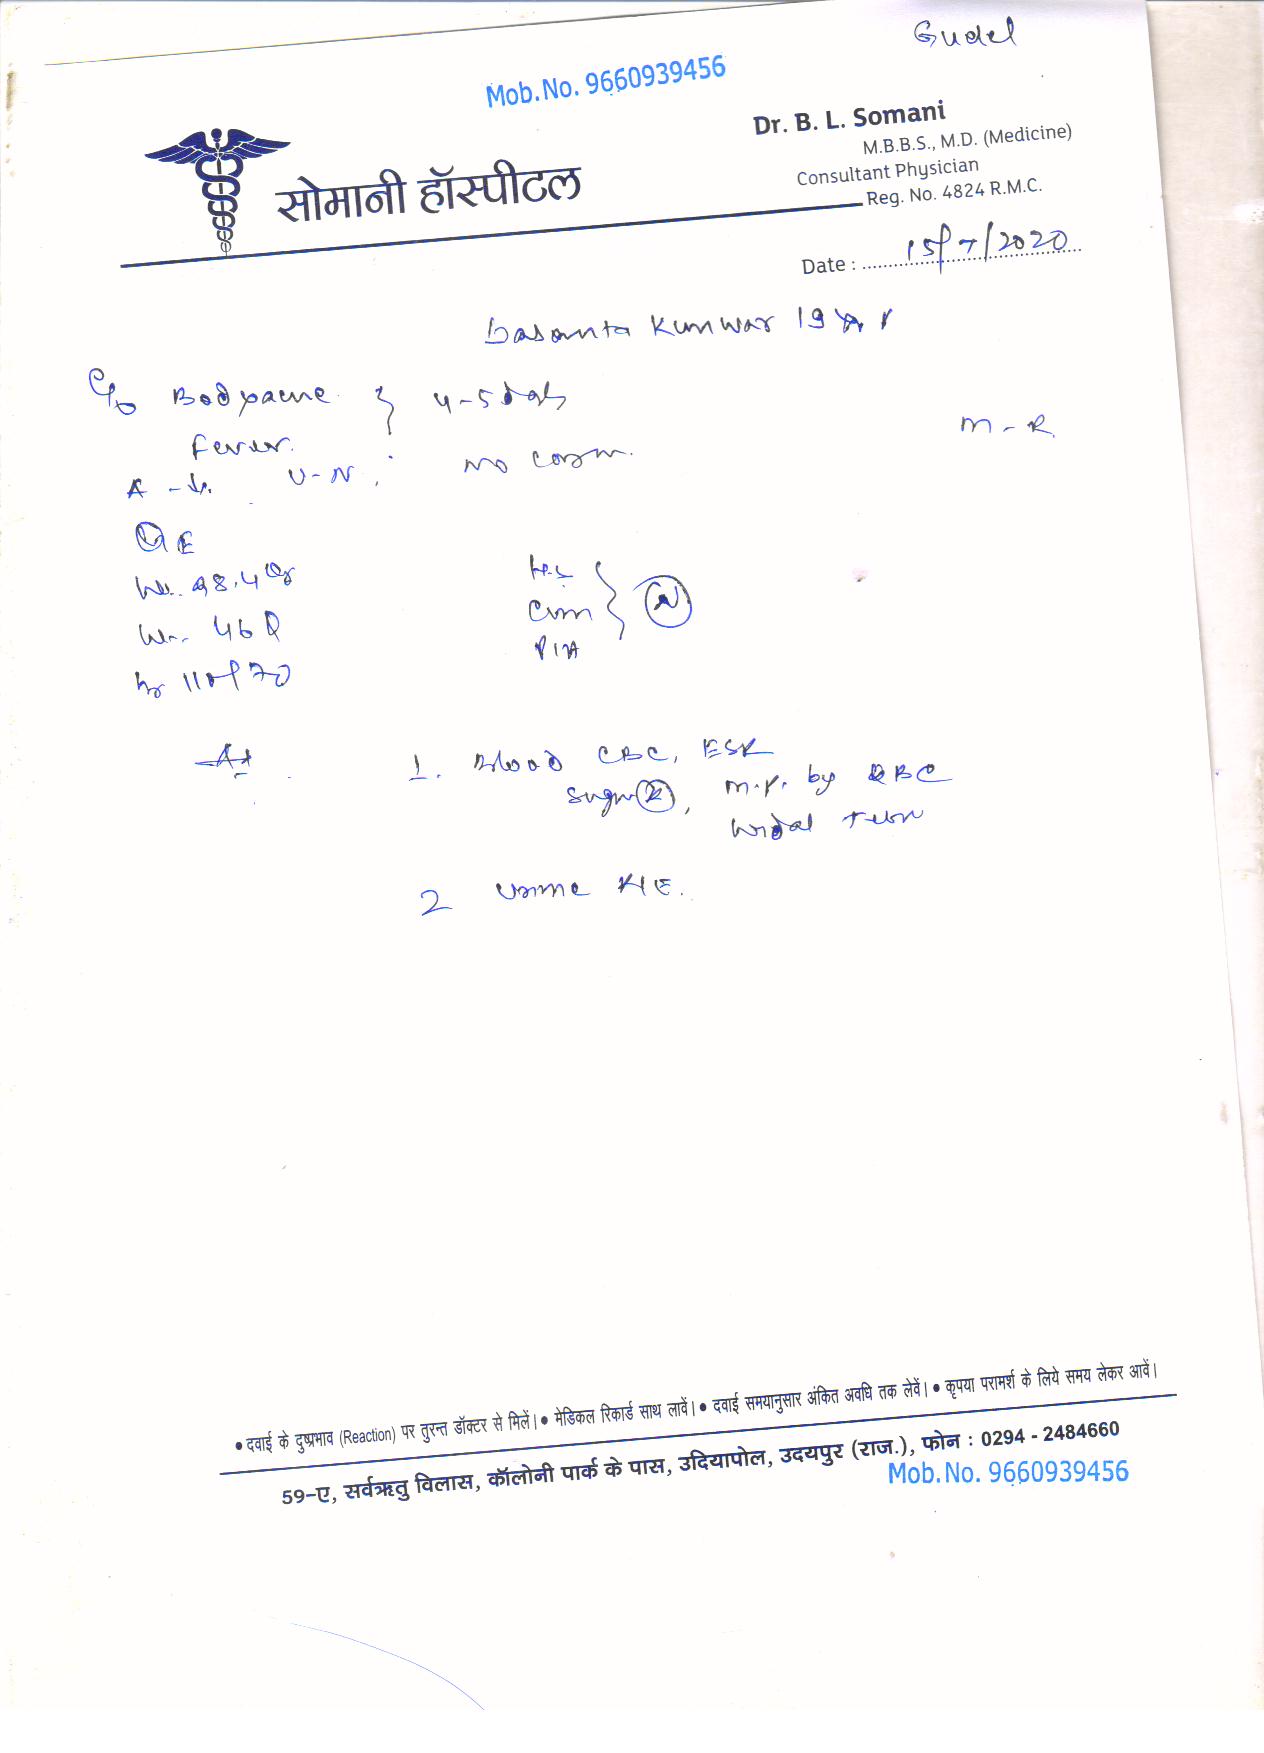 Gudel
Mob.No. 9660939456
Dr. B. L. Somani
M.B.B.S., M.D. (Medicine)
Consultant Physician
Reg. No. 4824 R.M.C.
सोमानी हॉस्पीटल
Date : 15/7/2020
Basanta Kunwar 19
C/o Bodyache } 4-5 days
Fever.
M - R
A - U - N, no
O/E
98.4
46
110/70
H.S
CVM } N
P/A
1. Blood CBC, ESR
Sugar (R), M.P. by QBC
Widal
2 Urine
• दवाई के दुष्प्रभाव (Reaction) पर तुरन्त डॉक्टर से मिलें। • मेडिकल रिकार्ड साथ लावें। • दवाई समयानुसार अंकित अवधि तक लेवें। • कृपया परामर्श के लिये समय लेकर आवें।
59-ए, सर्वऋतु विलास, कॉलोनी पार्क के पास, उदियापोल, उदयपुर (राज.), फोन : 0294 - 2484660
Mob.No. 9660939456